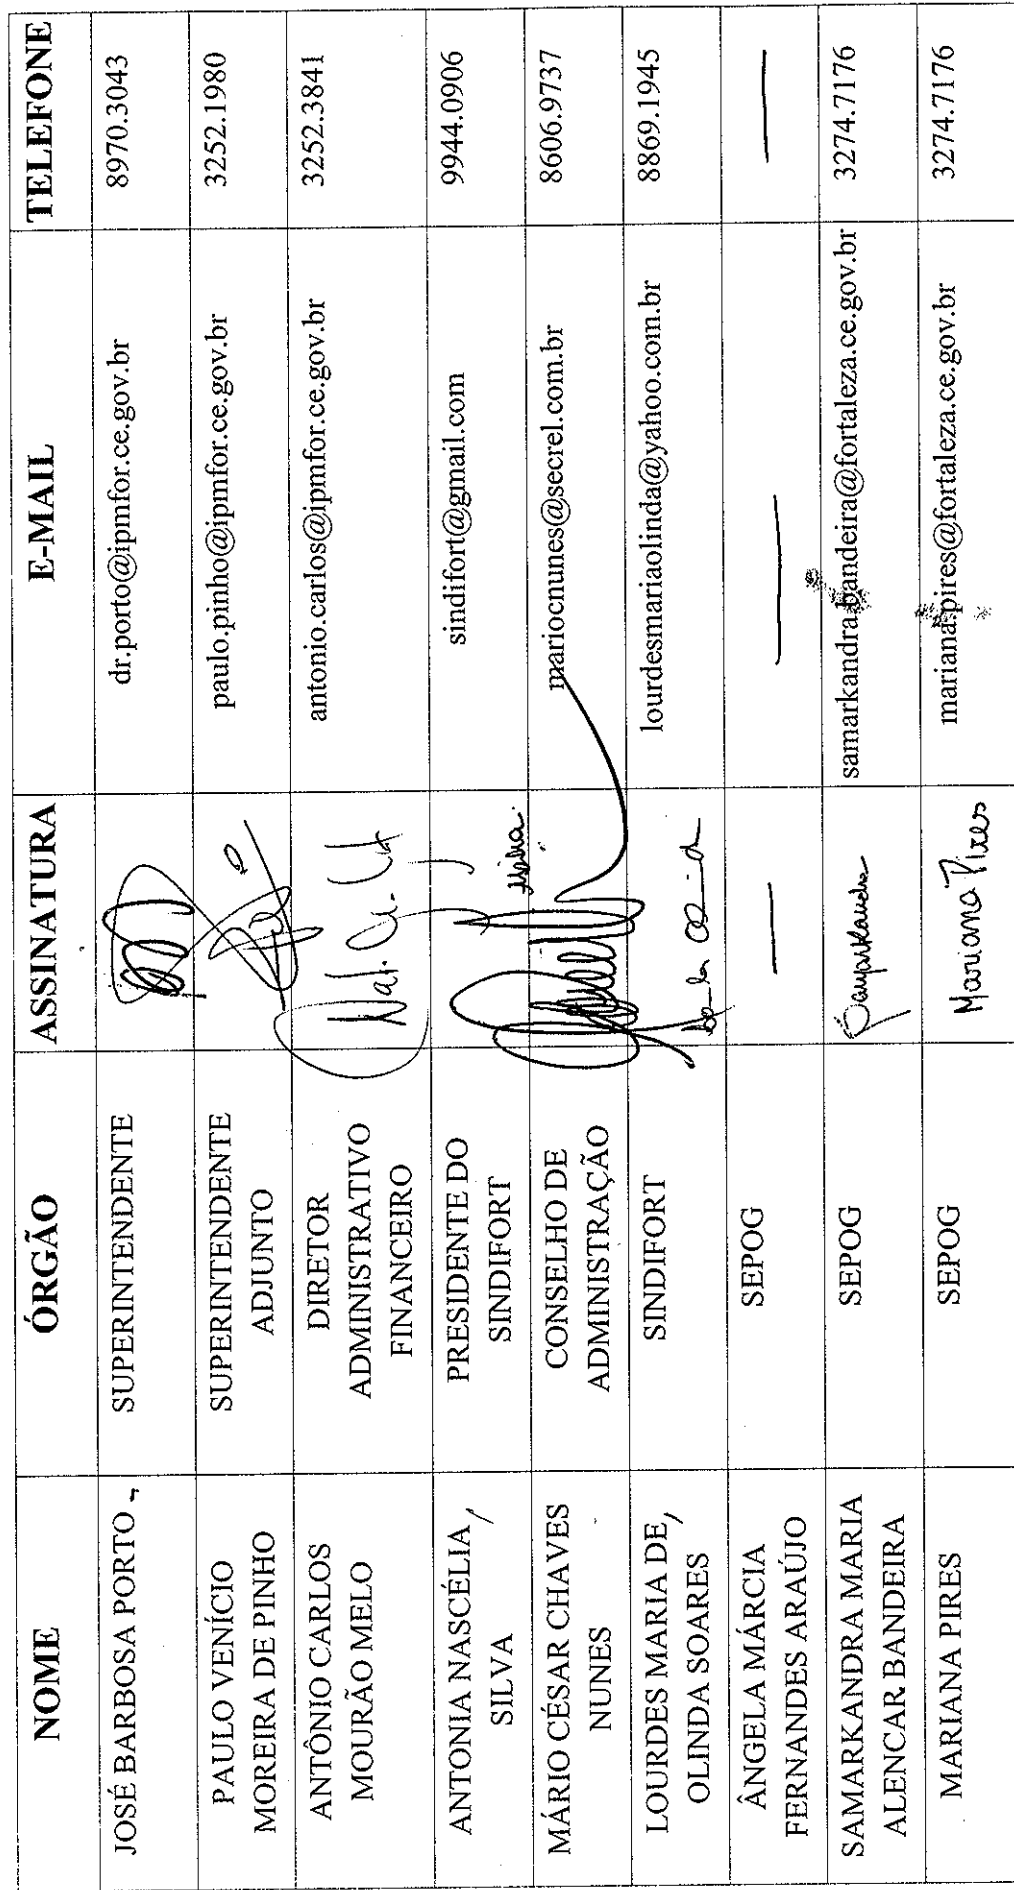 NOME ÓRGÃO ASSINATURA E-MAIL TELEFONE
JOSÉ BARBOSA PORTO SUPERINTENDENTE dr.porto@ipmfor.ce.gov.br 8970.3043
PAULO VENÍCIO
MOREIRA DE PINHO
SUPERINTENDENTE
ADJUNTO
paulo.pinho@ipmfor.ce.gov.br 3252.1980
ANTÔNIO CARLOS
MOURÃO MELO
DIRETOR
ADMINISTRATIVO
FINANCEIRO
antonio.carlos@ipmfor.ce.gov.br 3252.3841
ANTONIA NASCÉLIA
SILVA
PRESIDENTE DO
SINDIFORT
sindifort@gmail.com 9944.0906
MÁRIO CÉSAR CHAVES
NUNES
CONSELHO DE
ADMINISTRAÇÃO
mariocnunes@secrel.com.br 8606.9737
LOURDES MARIA DE
OLINDA SOARES
SINDIFORT
lourdesmariaolinda@yahoo.com.br 8869.1945
ÂNGELA MÁRCIA
FERNANDES ARAÚJO
SEPOG — — —
SAMARKANDRA MARIA
ALENCAR BANDEIRA
SEPOG Samarkandra samarkandra.bandeira@fortaleza.ce.gov.br 3274.7176
MARIANA PIRES SEPOG Mariana Pires mariana.pires@fortaleza.ce.gov.br 3274.7176